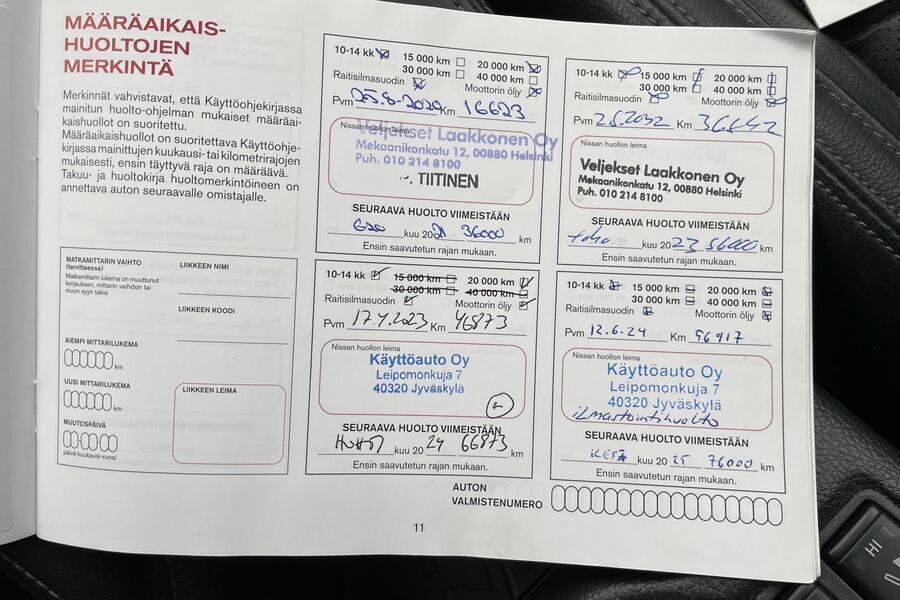 MÄÄRÄAIKAIS-
HUOLTOJEN
MERKINTÄ
Merkinnät vahvistavat, että Käyttöohjekirjassa
mainitun huolto-ohjelman mukaiset määräai-
kaishuollot on suoritettu.
Määräaikaishuollot on suoritettava Käyttöohje-
kirjassa mainittujen kuukausi- tai kilometrirajojen
mukaisesti, ensin täyttyvä raja on määräävä.
Takuu- ja huoltokirja huoltomerkintöineen on
annettava auton seuraavalle omistajalle.
MATKAMITTARIN VAIHTO
(tarvittaessa)
Matkamittarin lukema on muuttunut
korjauksen, mittarin vaihdon tai
muun syyn takia.
AIEMPI MITTARILUKEMA
km
UUSI MITTARILUKEMA
km
MUUTOSPÄIVÄ
päivä-kuukausi-vuosi
LIIKKEEN NIMI
LIIKKEEN KOODI
LIIKKEEN LEIMA
10-14 kk 15 000 km 20 000 km
30 000 km 40 000 km
Raitisilmasuodin Moottorin öljy
Pvm 25.8-2020 Km 16623
Nissan huollon leima
Veljekset Laakkonen Oy
Mekaanikonkatu 12, 00880 Helsinki
Puh. 010 214 8100
TIITINEN
SEURAAVA HUOLTO VIIMEISTÄÄN
kuu 2021 36000 km
Ensin saavutetun rajan mukaan.
10-14 kk 15 000 km 20 000 km
30 000 km 40 000 km
Raitisilmasuodin Moottorin öljy
Pvm Km 36842
Nissan huollon leima
Veljekset Laakkonen Oy
Mekaanikonkatu 12, 00880 Helsinki
Puh. 010 214 8100
SEURAAVA HUOLTO VIIMEISTÄÄN
kuu 2023 56000 km
Ensin saavutetun rajan mukaan.
10-14 kk 15 000 km 20 000 km
30 000 km 40 000 km
Raitisilmasuodin Moottorin öljy
Pvm 17.4.2023 Km 46873
Nissan huollon leima
Käyttöauto Oy
Leipomonkuja 7
40320 Jyväskylä
SEURAAVA HUOLTO VIIMEISTÄÄN
HUHTI kuu 2024 66873 km
Ensin saavutetun rajan mukaan.
10-14 kk 15 000 km 20 000 km
30 000 km 40 000 km
Raitisilmasuodin Moottorin öljy
Pvm 12.6-24 Km 56917
Nissan huollon leima
Käyttöauto Oy
Leipomonkuja 7
40320 Jyväskylä
ilmastointihuolto
SEURAAVA HUOLTO VIIMEISTÄÄN
KESÄ kuu 2025 76000 km
Ensin saavutetun rajan mukaan.
AUTON
VALMISTENUMERO
11
HI